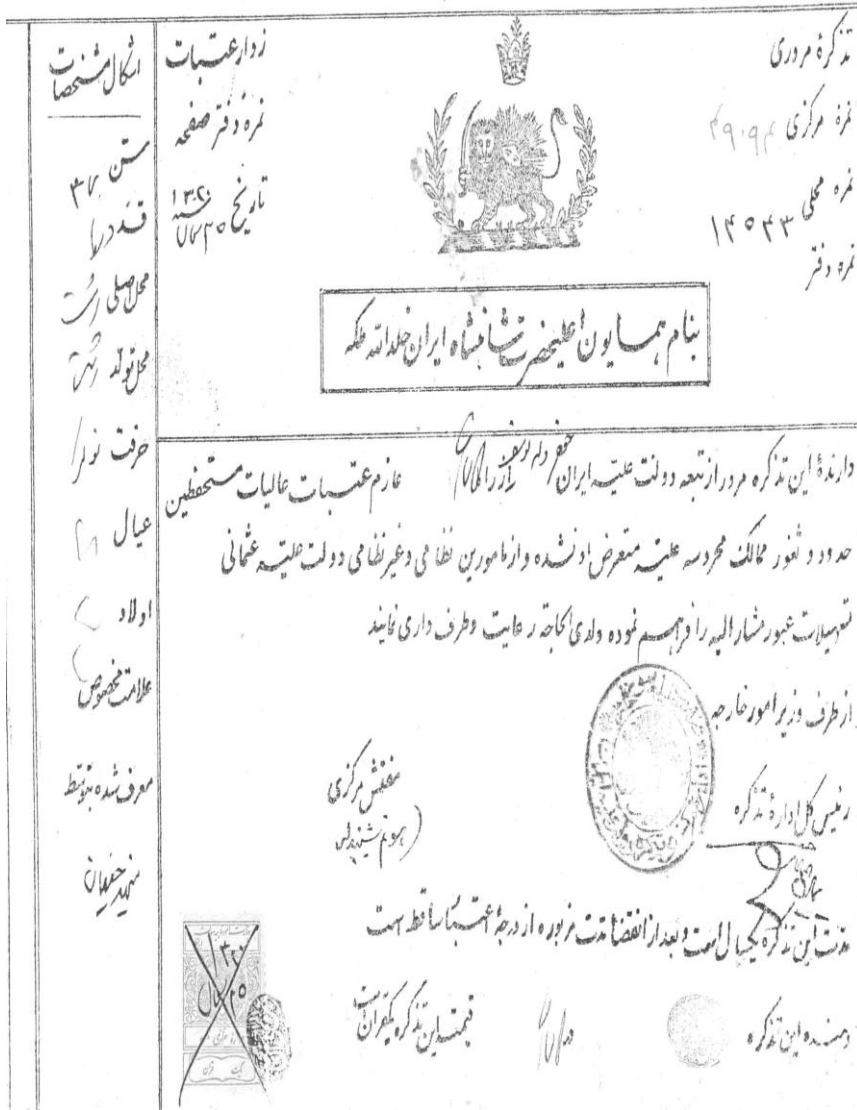 تذکرهٔ مروری
نمرهٔ مرکزی
نمره محلی ۱۴۵۴۳
نمره دفتر
زوار عتبات
نمره دفتر صفحه
تاریخ ۲۵ ۱۳۲۰
بنام همایون اعلیحضرت شاهنشاه ایران خلدالله ملکه
دارندهٔ این تذکره مرور از تبعه دولت علیه ایران عازم عتبات عالیات مستحفظین
حدود و ثغور ممالک محروسه علیه متعرض او نشده و از مامورین نظامی و غیر نظامی دولت علیه عثمانی
تسهیلات عبور مشار الیه را فراهم نموده ولدی الحاجة رعایت و طرف داری نمایند
از طرف وزیر امور خارجه
رئیس کل ادارهٔ تذکره
مفتش مرکزی
مدت این تذکره یکسال است و بعد از انقضا مدت مزبوره از درجهٔ اعتبار ساقط است
دهنده این تذکره
قیمت این تذکره یکقران است
۱۳۲۰
۲۵
اشکال مشخصات
سن ۳۷
قد
محل اصلی رشت
محل تولد رشت
حرفت نوکر
عیال
اولاد
علامت مخصوص
معرف شده بتوسط